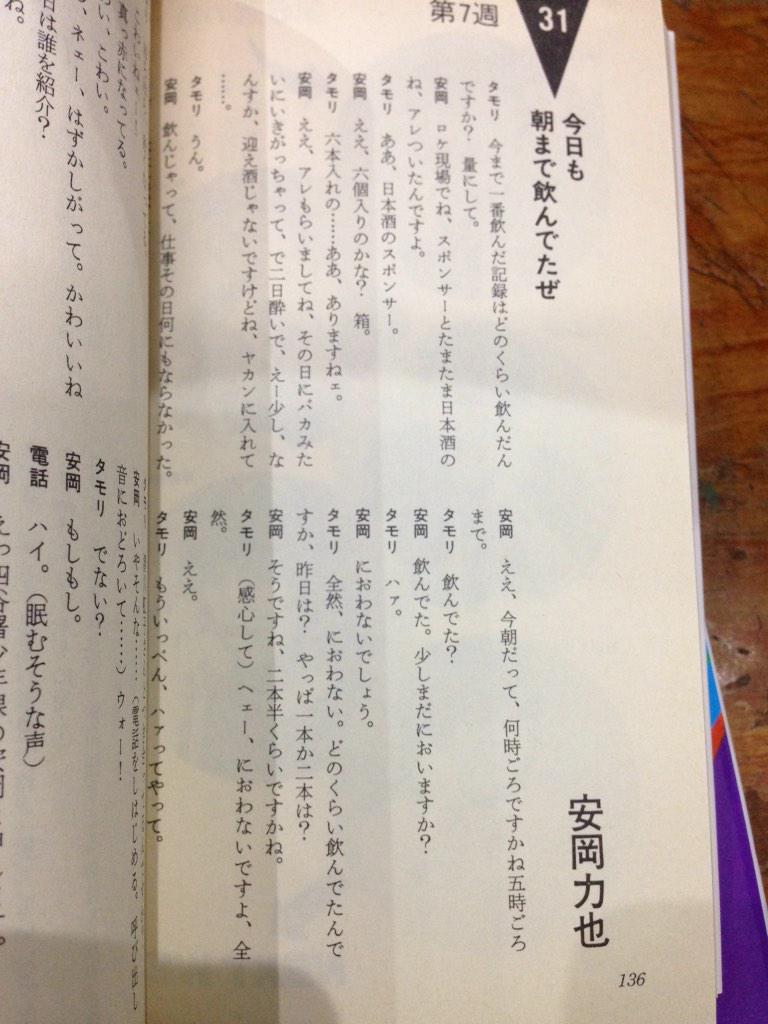 第7週
31
今日も
朝まで飲んでたぜ
安岡力也
タモリ　今まで一番飲んだ記録は、どのくらい飲んだん
ですか?　量にして。
安岡　ロケ現場でね、スポンサーとたまたま日本酒の
ね、アレついたんですよ。
タモリ　ああ、日本酒のスポンサー。
安岡　ええ、六個入りのかな?　箱。
タモリ　六本入れの……ああ、ありますねェ。
安岡　ええ、アレもらいましてね、その日にバカみた
いにいきがっちゃって、で二日酔いで、えー少し、な
んすか、迎え酒じゃないですけどね、ヤカンに入れて
……。
タモリ　うん。
安岡　飲んじゃって、仕事その日何にもならなかった。
安岡　ええ、今朝だって、何時ごろですかね五時ごろ
まで。
タモリ　飲んでた?
安岡　飲んでた。少しまだにおいますか?
タモリ　ハァ。
安岡　におわないでしょう。
タモリ　全然、におわない。どのくらい飲んでたんで
すか、昨日は?　やっぱ一本か二本は?
安岡　そうですね、二本半くらいですかね。
タモリ　(感心して)ヘェー、におわないですよ、全
然。
安岡　ええ。
タモリ　もういっぺん、ハァってやって。
136
真っ赤になってる。
い、こわい。
ネェー、はずかしがって。かわいいね
日は誰を紹介?
ね。
安岡　いやそんな……(電話をしはじめる。呼び出し
音におどろいて……)ウォー!
タモリ　でない?
安岡　もしもし。
電話　ハイ。(眠むそうな声)
安岡